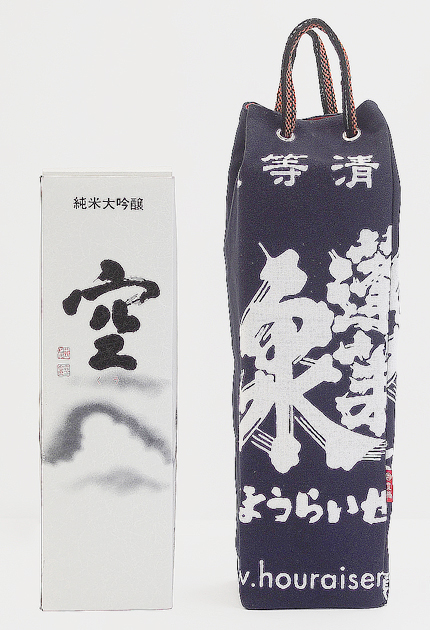 純米大吟醸
空
等清
泉
ようらいせ
w.houraisen